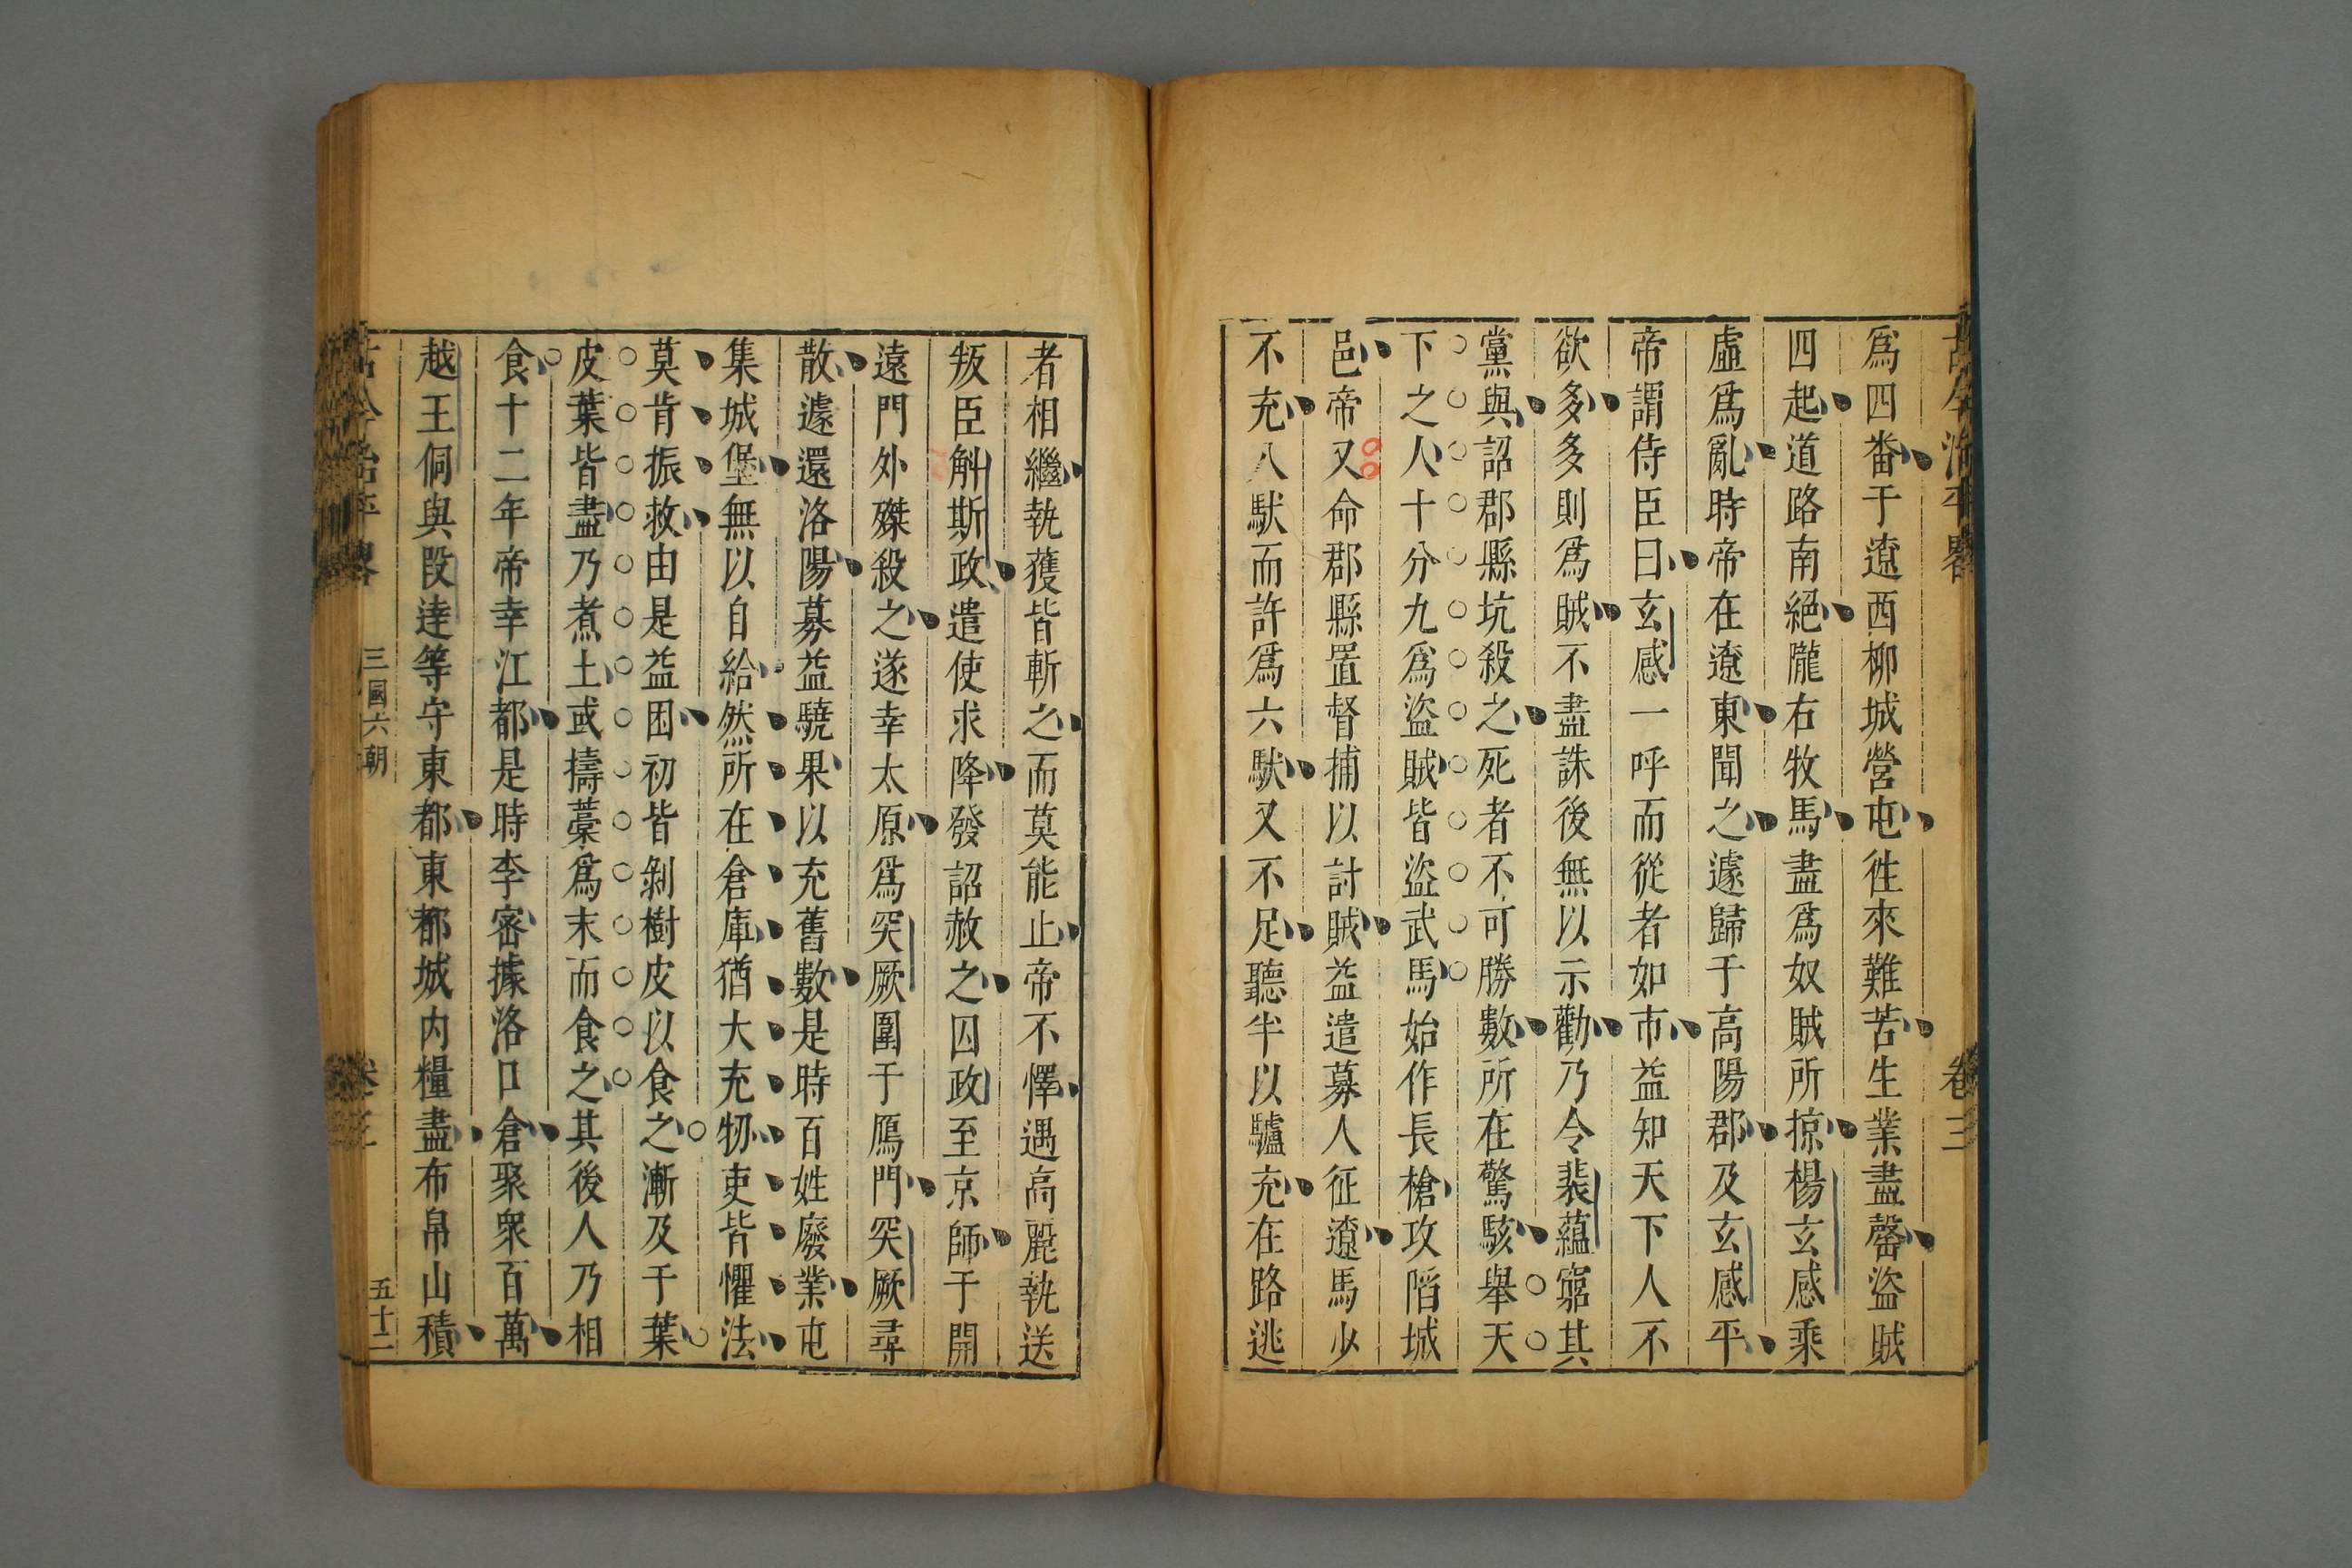 古今治平畧 卷三
爲四畨于遼西柳城營屯徃來難苦生業盡罄盜賊
四起道路南絕隴右牧馬盡爲奴賊所掠楊玄感乘
虛爲亂時帝在遼東聞之遽歸于高陽郡及玄感平
帝謂侍臣曰玄感一呼而從者如市益知天下人不
欲多多則爲賊不盡誅後無以示勸乃令裴蘊窮其
黨與詔郡縣坑殺之死者不可勝數所在驚駭舉天
下之人十分九爲盜賊皆盜武馬始作長槍攻陷城
邑帝又命郡縣置督捕以討賊益遣募人征遼馬少
不充八馱而許爲六馱又不足聽半以驢充在路逃
者相繼執獲皆斬之而莫能止帝不懌遇高麗執送
叛臣斛斯政遣使求降發詔赦之囚政至京師于開
遠門外磔殺之遂幸太原爲突厥圍于鴈門突厥尋
散遽還洛陽募益驍果以充舊數是時百姓廢業屯
集城堡無以自給然所在倉庫猶大充牣吏皆懼法
莫肯振救由是益困初皆剝樹皮以食之漸及于葉
皮葉皆盡乃煮土或擣藁爲末而食之其後人乃相
食十二年帝幸江都是時李密據洛口倉聚衆百萬
越王侗與段達等守東都東都城内糧盡布帛山積
古今治平畧 三國六朝 卷三 五十二